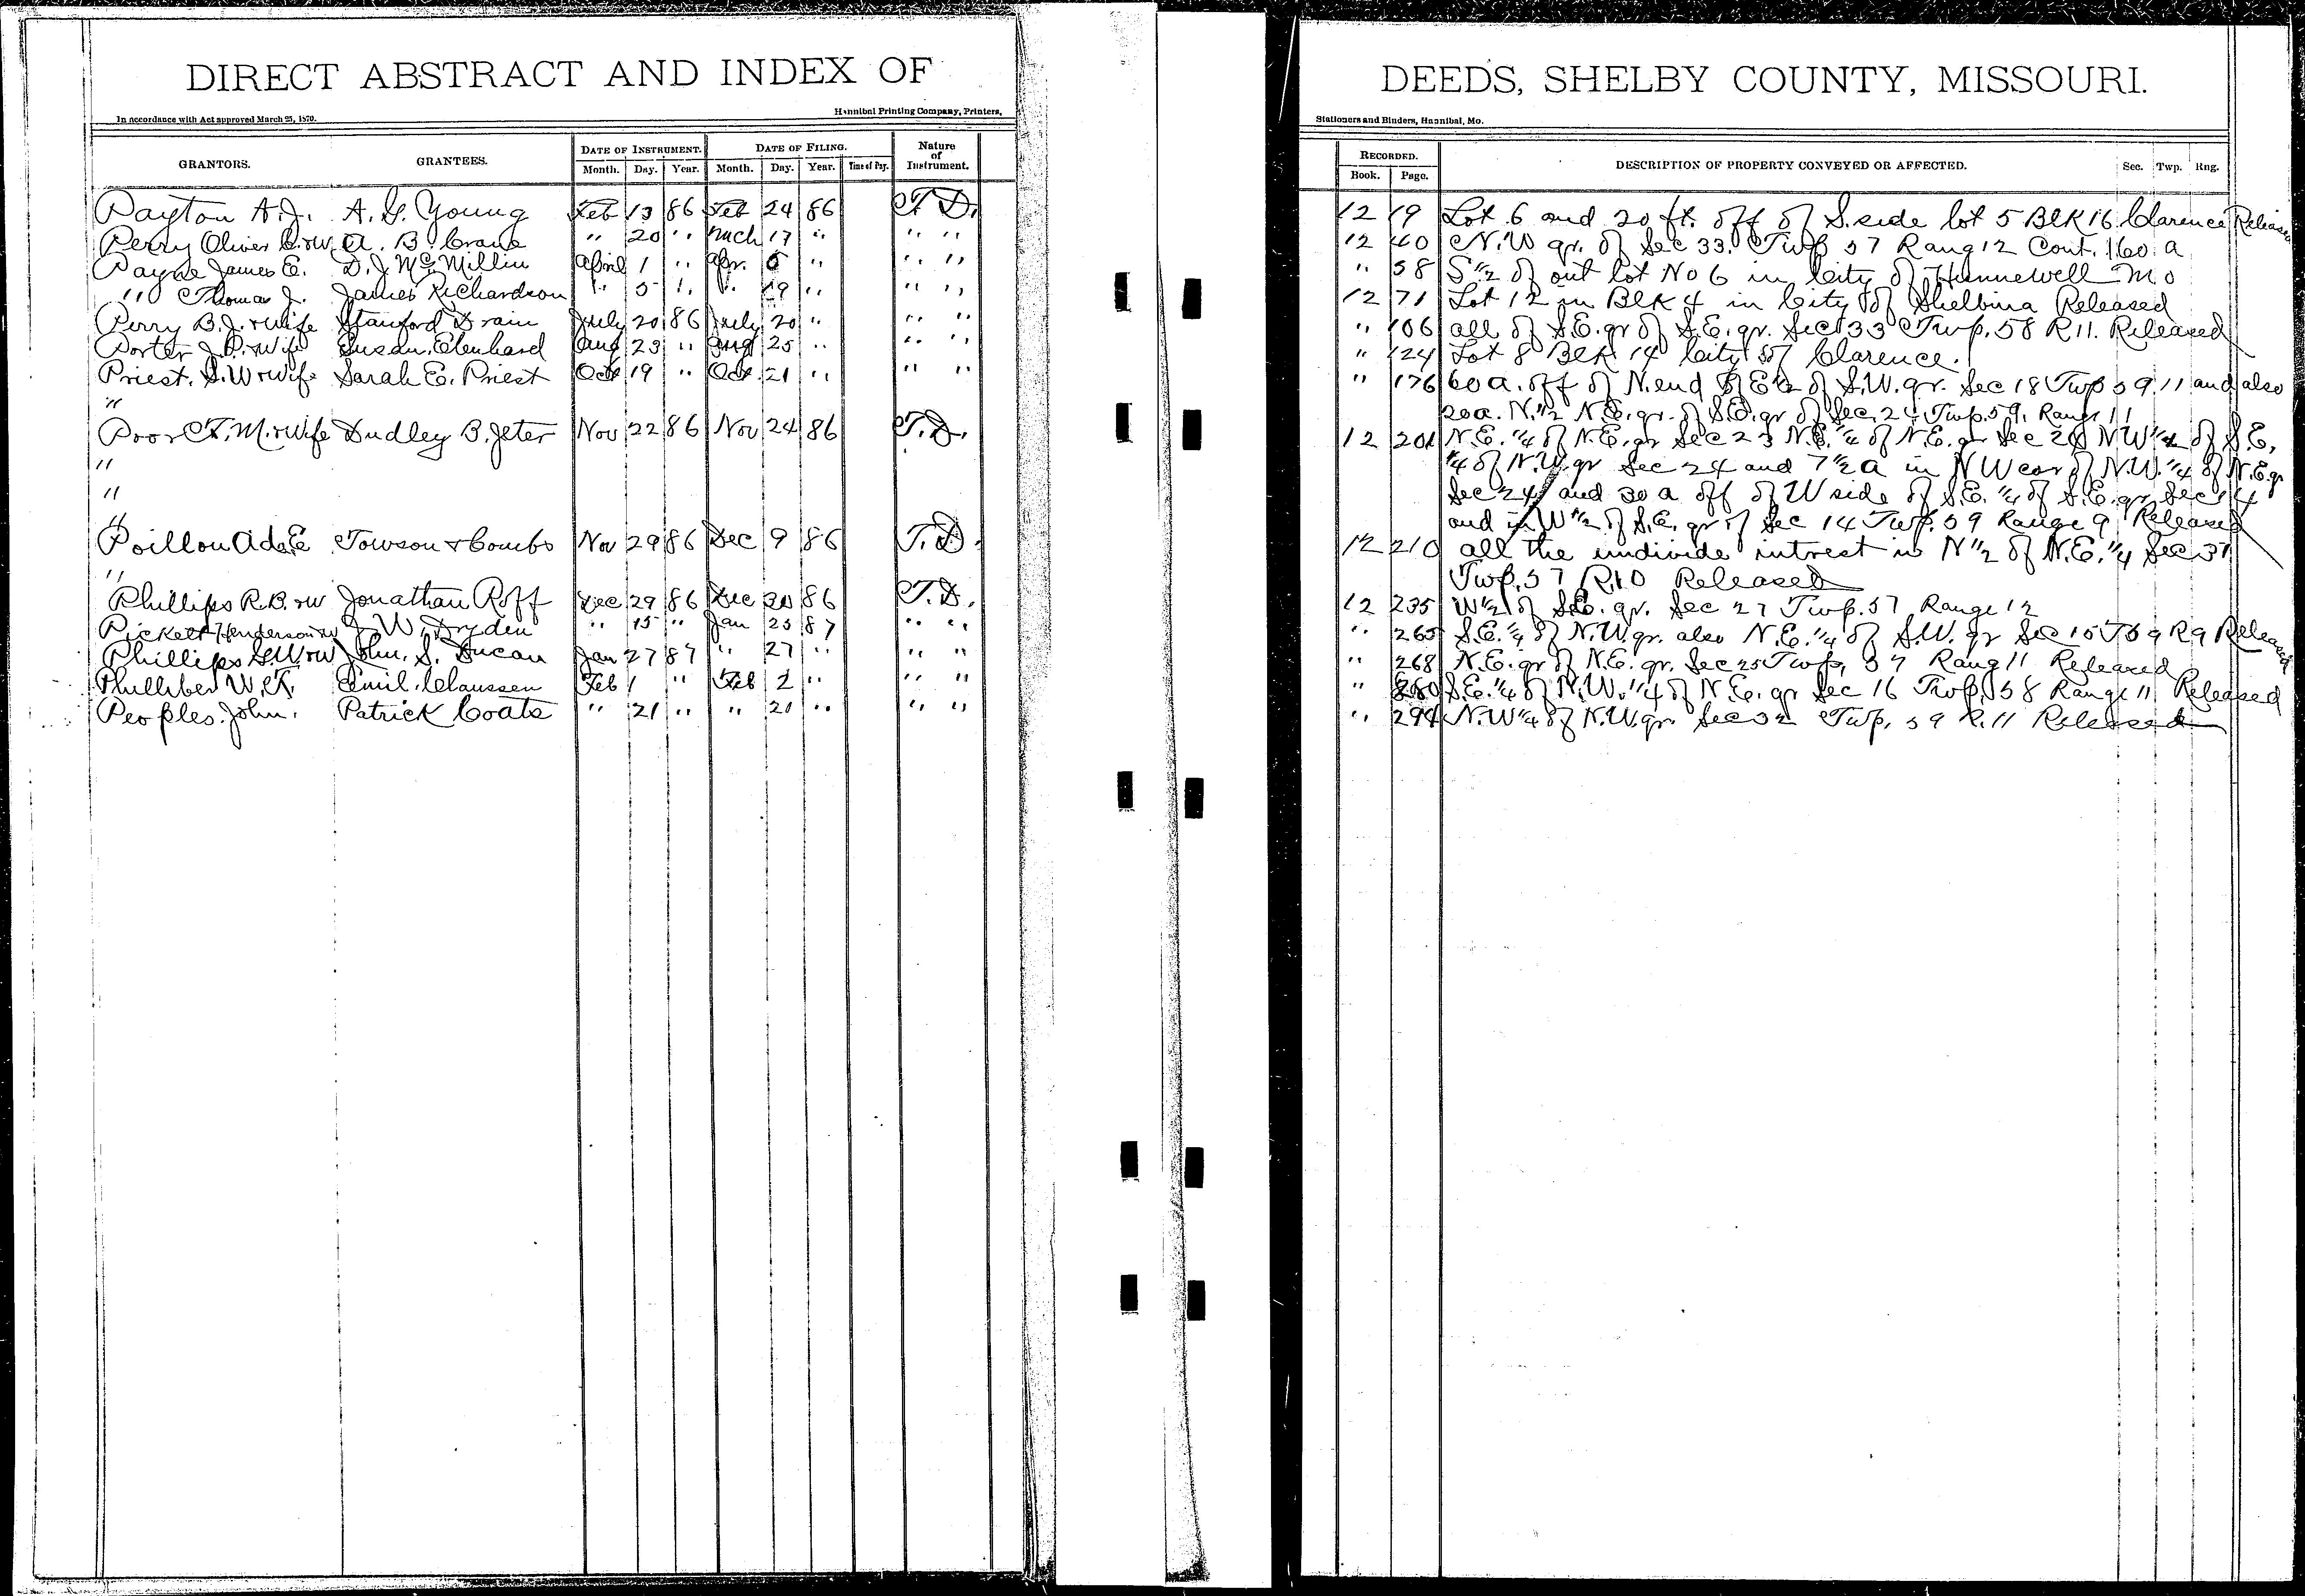 DIRECT ABSTRACT AND INDEX OF
In accordance with Act approved March 25, 1870.
Hannibal Printing Company, Printers,
GRANTORS. GRANTEES. DATE OF INSTRUMENT. DATE OF FILING. Nature of Instrument.
Month. Day. Year. Month. Day. Year. Time of Day.
Payton A.J. A. G. Young Feb 13 86 Feb 24 86 T. D.
Perry Oliver C. & W. A. B. Crane " 20 " Mch 17 " " "
Payne James E. D. J. McMillin April 1 " Apr. 6 " " "
" Thomas J. James Richardson " 5 " " 19 " " "
Perry B. J. & wife Stanford Drain July 20 86 July 20 " " "
Porter J. P. & wife Susan. Ebenhard Aug 23 " Aug 25 " " "
Priest. S. W & wife Sarah E. Priest Oct 19 " Oct. 21 " " "
"
Poor T. M. & wife Dudley B. Jeter Nov 22 86 Nov 24 86 T. D.
"
"
"
Poillon Ada E Towson & Combs Nov 29 86 Dec 9 86 T. D.
"
Phillips R. B. & W Jonathan Roff Dec 29 86 Dec 30 86 T. D.
Pickett Henderson & W J. W. Dryden " 15 " Jan 25 87 " "
Phillips G. W & W John. S. Ducan Jan 27 87 " 27 " " "
Philliber W. T. Emil. Claussen Feb 1 " Feb 2 " " "
Peoples. John. Patrick Coats " 21 " " 20 " " "
DEEDS, SHELBY COUNTY, MISSOURI.
Stationers and Binders, Hannibal, Mo.
RECORDED. DESCRIPTION OF PROPERTY CONVEYED OR AFFECTED. Sec. Twp. Rng.
Book. Page.
12 19 Lot 6 and 20 ft. off of S. side lot 5 Blk 16 Clarence Released
12 40 N. W qr. of Sec 33. Twp 57 Rang 12 Cont. 160. a
" 58 S 1/2 of out lot No 6 in City of Hunnewell Mo
12 71 Lot 12 in Blk 4 in City of Shelbina Released
" 106 all of S. E. qr of S. E. qr. Sec 33 Twp. 58 R 11. Released
" 124 Lot 8 Blk 14 City of Clarence.
" 176 60 a. off of N. end of E 1/2 of S. W. qr. Sec 18 Twp 59. 11 and also
20 a. N. 1/2 N. E. qr. of S. E. qr of Sec. 24 Twp. 59. Range 11
12 201 N. E. 1/4 of N. E. qr Sec 23 N. E. 1/4 of N. E. qr Sec 26 N W 1/4 of S. E.
1/4 of N. W. qr Sec 24 and 7 1/2 a in N W cor of N. W. 1/4 of N. E. qr
Sec 24 and 30 a off of W side of S. E. 1/4 of S. E. qr Sec 14
and in W 1/2 of S. E. qr of Sec 14 Twp. 59 Range 9 Released
12 210 all the undivide intrest in N 1/2 of N. E. 1/4 Sec 31
Twp. 57 R. 10 Released
12 235 W 1/2 of S. E. qr. Sec 27 Twp. 57 Range 12
" 265 S. E. 1/4 of N. W. qr. also N. E. 1/4 of S. W. qr Sec 15 T 59 R 9 Released
" 268 N. E. qr of N. E. qr. Sec 25 Twp. 57 Rang 11 Released
" 280 S. E. 1/4 of N. W. 1/4 of N. E. qr Sec 16 Twp. 58 Range 11 Released
" 294 N. W 1/4 of N. W. qr. Sec 32 Twp. 59 R. 11 Released